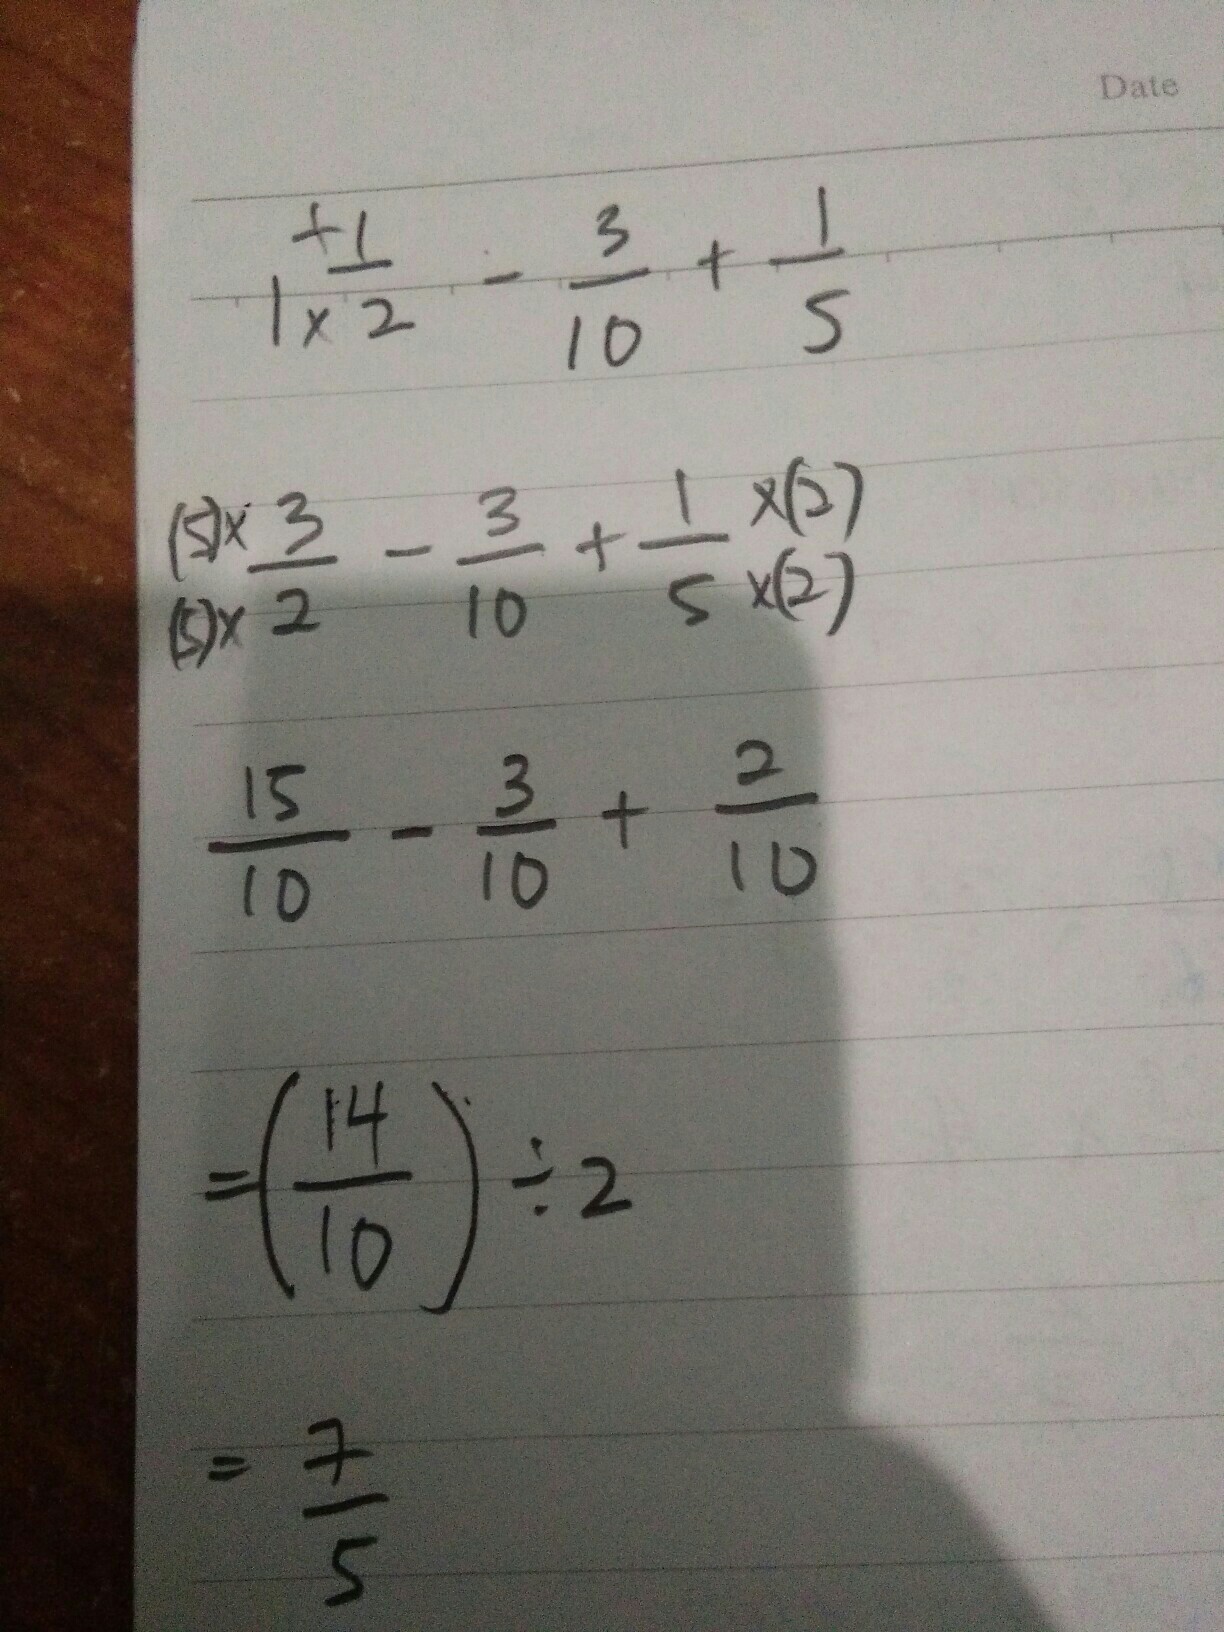 Date
+1/1×2 - 3/10 + 1/5
(5)× 3/(5)× 2 - 3/10 + 1 ×(2)/5 ×(2)
15/10 - 3/10 + 2/10
= (14/10) ÷ 2
= 7/5